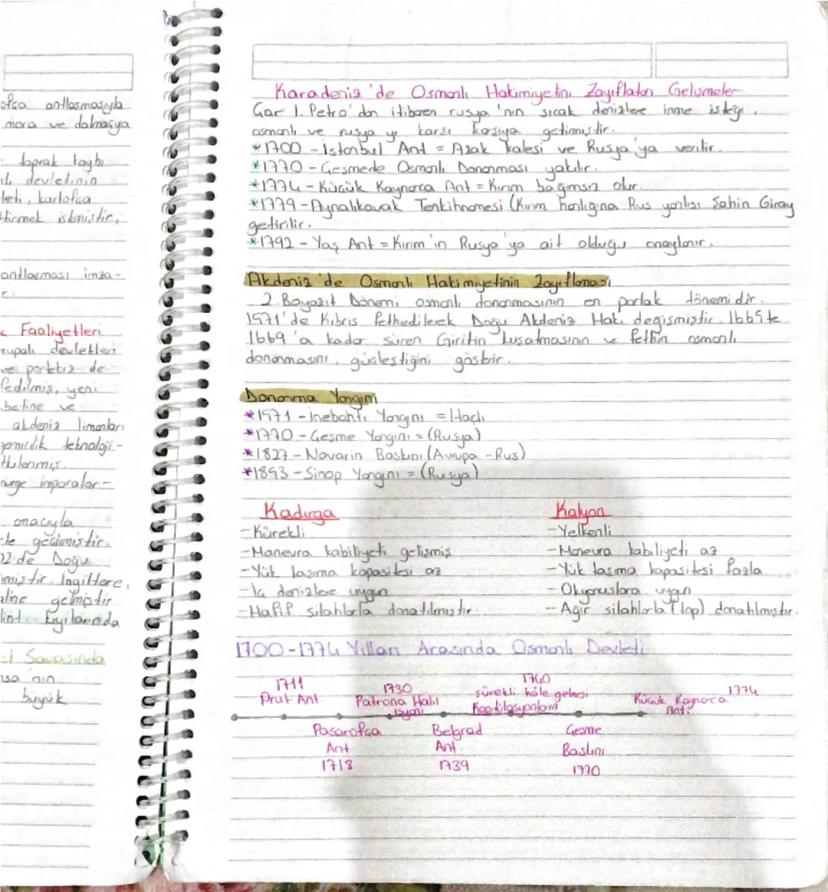 ofça antlaşmasıyla
mora ve dalmaçya
toprak kaybı
devletinin
karlofça
tirmek istmiştir,
antlaşması imza-
Faaliyetleri
rupalı devletleri
ve portekiz de
fedilmiş, yeni
ve
akdeniz limanları
teknoloji-
imparator-
amacıyla
geçilmiştir.
de Doğu
imiştir. İngiltere,
aline gelmiştir.
kıyılarında
Savaşında
nın
büyük
Karadeniz'de Osmanlı Hakimiyetini Zayıflatan Gelişmeler
Çar 1. Petro'dan itibaren rusya'nın sıcak denizlere inme isteği,
osmanlı ve rusya yı karşı karşıya getirmiştir.
*1700 - İstanbul Ant = Azak kalesi ve Rusya'ya verilir.
*1770 - Çeşmede Osmanlı Donanması yakılır.
*1774 - Küçük Kaynarca Ant = Kırım bağımsız olur.
*1779 - Aynalıkavak Tenkihnamesi (Kırım hanlığına Rus yanlısı Şahin Giray
getirilir.
*1792 - Yaş Ant = Kırım'ın Rusya'ya ait olduğu onaylanır.
Akdeniz'de Osmanlı Hakimiyetinin Zayıflaması
2. Bayazıt Dönemi osmanlı donanmasının en parlak dönemidir.
1571'de Kıbrıs fethedilerek Doğu Akdeniz Hak. değişmiştir. 1665 te
1669'a kadar süren Giritin kuşatmasının ve fethin osmanlı
donanmasını, güçleştiğini gösterir.
Donanma Yangını
*1571 - İnebahtı Yangını = Haçlı
*1770 - Çeşme Yangını = (Rusya)
*1827 - Navarin Baskını (Avrupa - Rus)
*1853 - Sinop Yangını = (Rusya)
Kadırga Kalyon
- Kürekli - Yelkenli
- Manevra kabiliyeti gelişmiş - Manevra kabiliyeti az
- Yük taşıma kapasitesi az - Yük taşıma kapasitesi fazla
- İç denizlere uygun - Okyanuslara uygun
- Hafif silahlarla donatılmıştır. - Ağır silahlarla (top) donatılmıştır.
1700-1774 Yılları Arasında Osmanlı Devleti
1711
Prut Ant
1730
Patrona Halil
İsyanı
1740
sürekli hâle gelmesi
Kapitilasyonların
1774
Küçük Kaynarca
Ant.
Pasarofça
Ant
1718
Belgrad
Ant.
1739
Çeşme
Baskını
1770